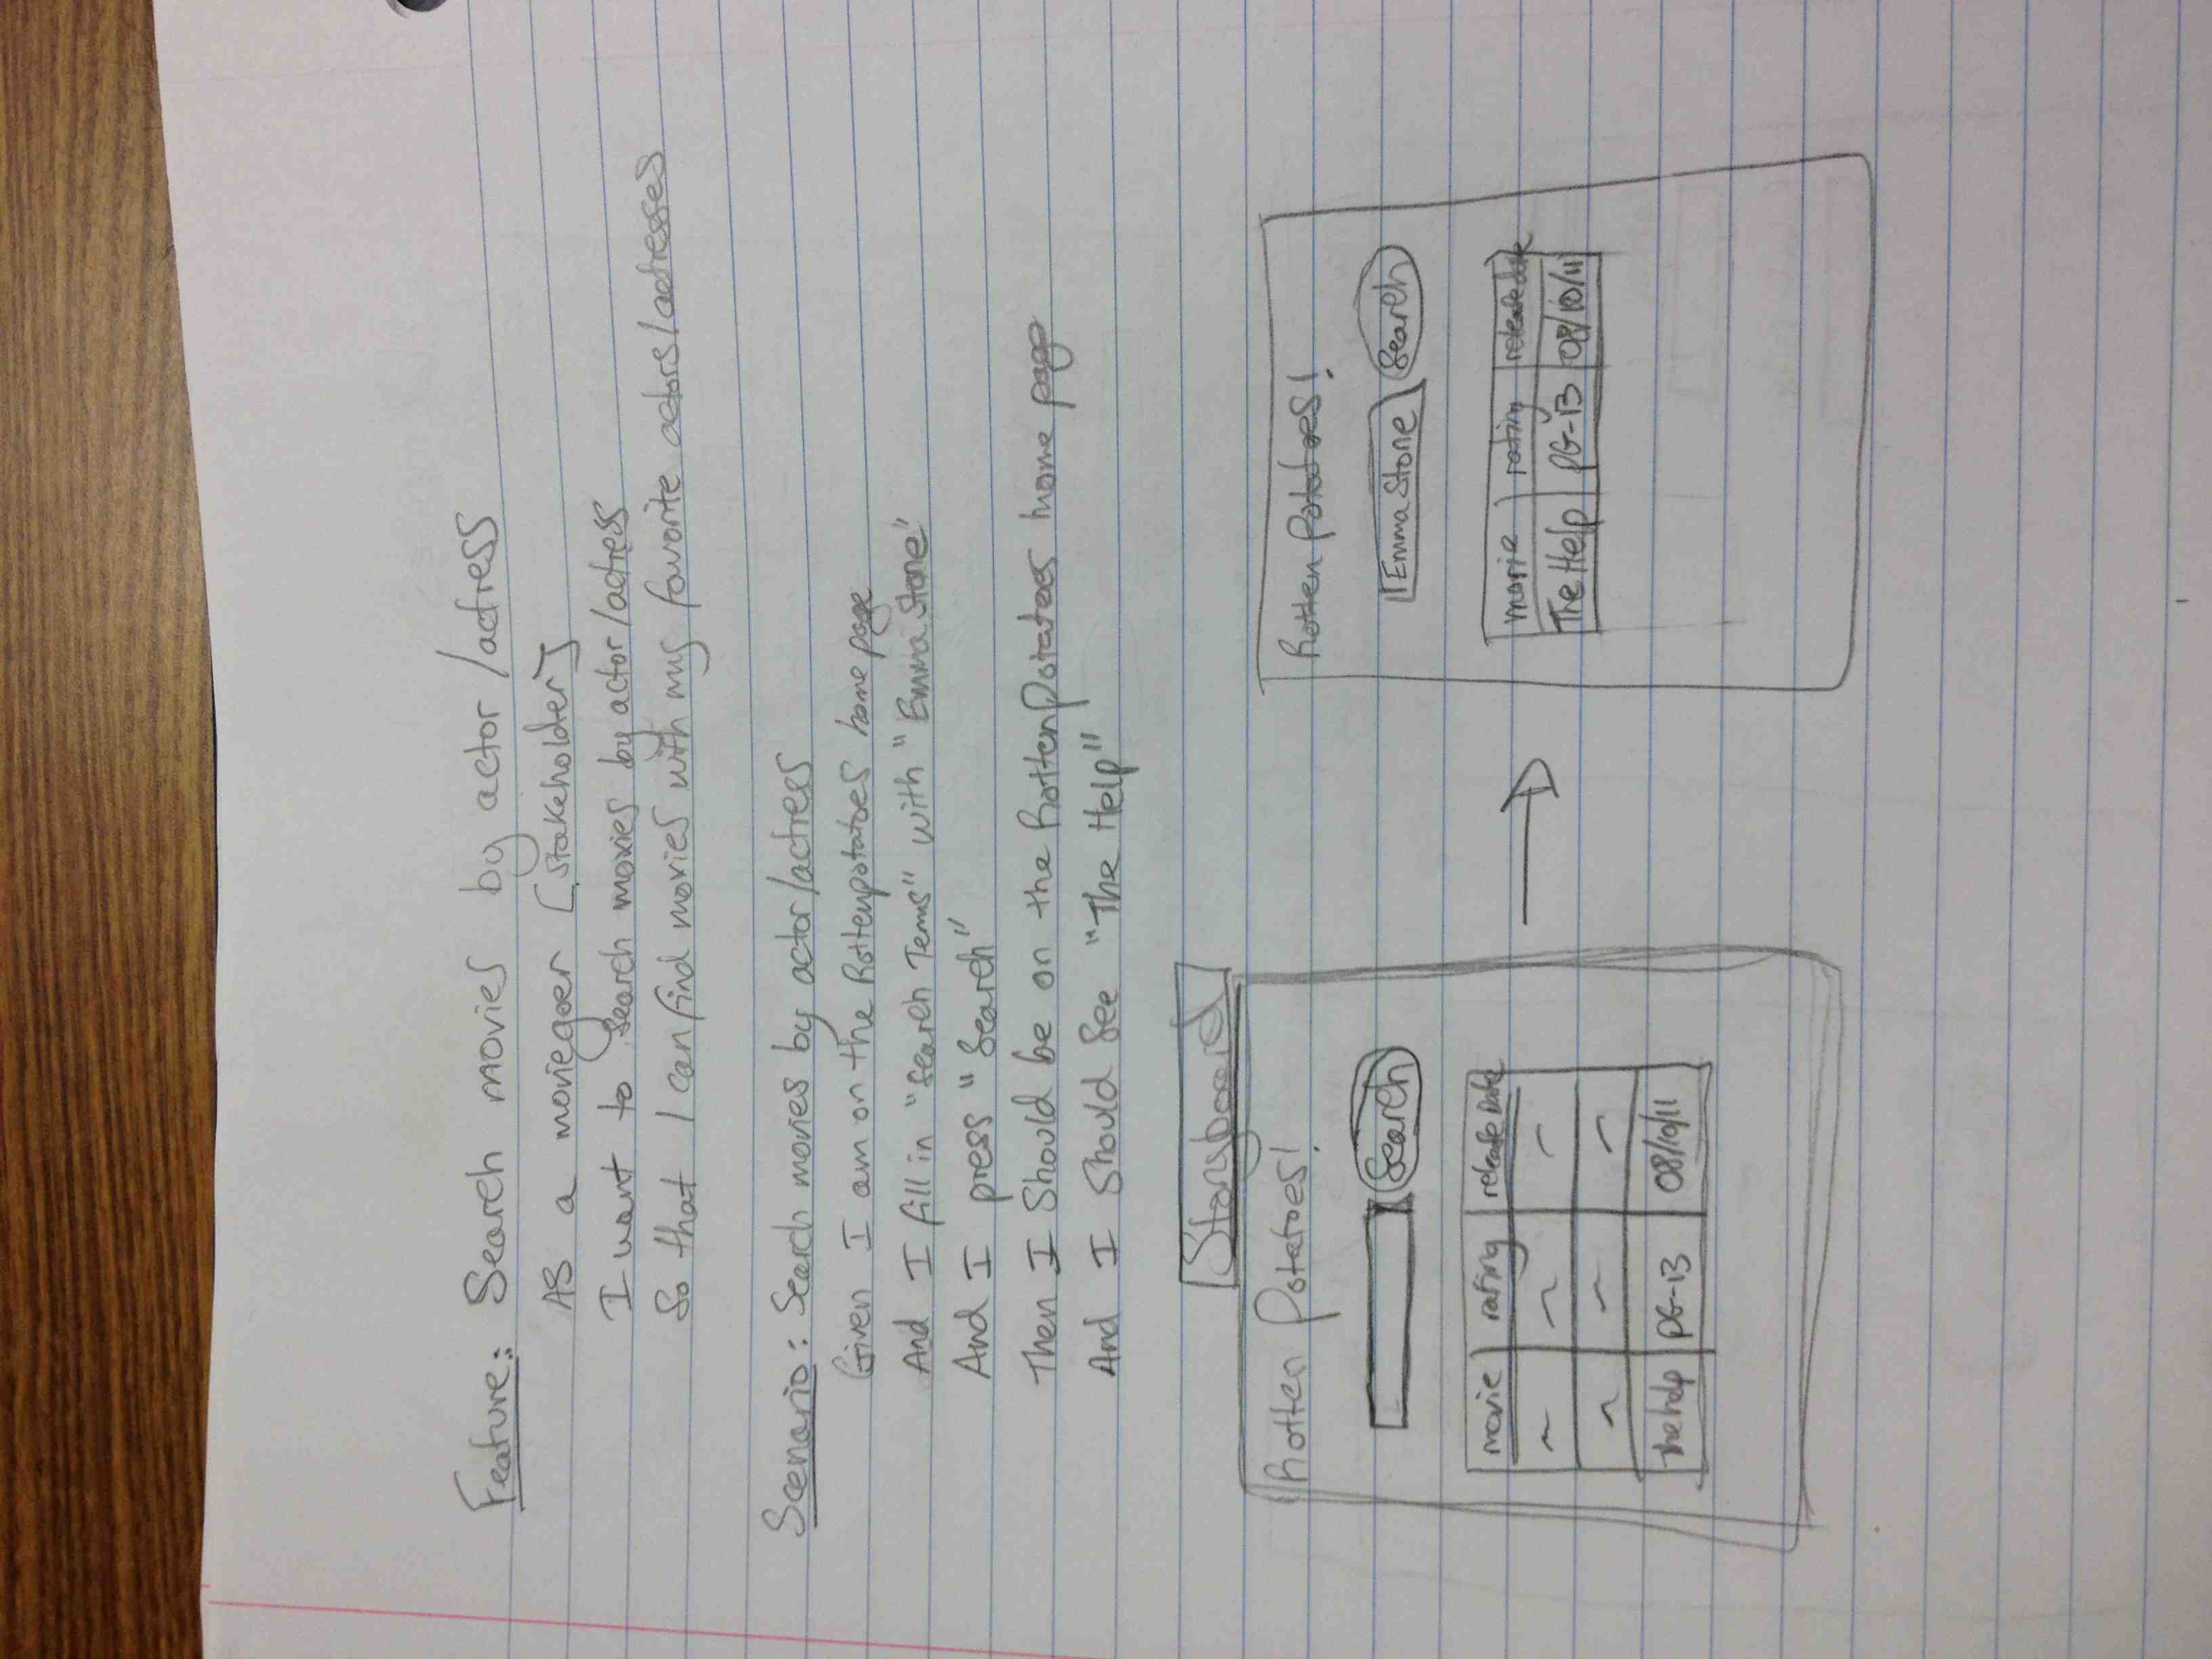 Feature: Search movies by actor/actress
As a moviegoer [stakeholder]
I want to search movies by actor/actress
So that I can find movies with my favorite actors/actresses
Scenario: Search movies by actor/actress
Given I am on the Rottenpotatoes home page
And I fill in "Search Terms" with "Emma Stone"
And I press "Search"
Then I should be on the RottenPotatoes home page
And I should see "The Help"
Storyboard
Rotten Potatoes!
Search
movie rating release Date
The help PG-13 08/10/11
Rotten Potatoes!
Emma Stone Search
movie rating release date
The Help PG-13 08/10/11